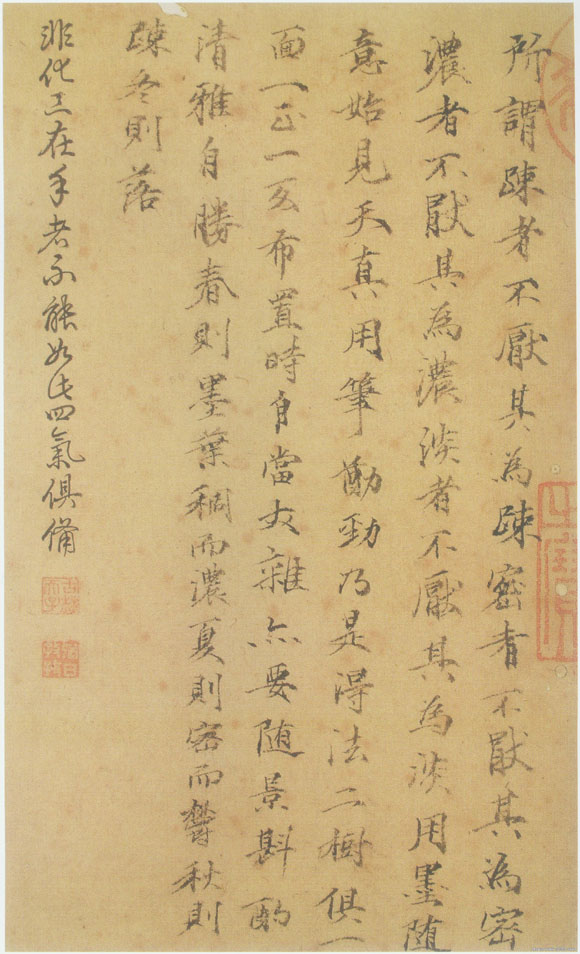 所謂踈者不厭其為踈密者不厭其為密
濃者不厭其為濃淡者不厭其為淡用墨随
意始見天真用筆勁乃是得法二樹俱一
面一正一布置時自當雜亦要随景斟酌
清雅自勝春則墨葉稠而濃夏則密而鬱秋則
踈冬則落
非化工在手者不能如此四氣俱備